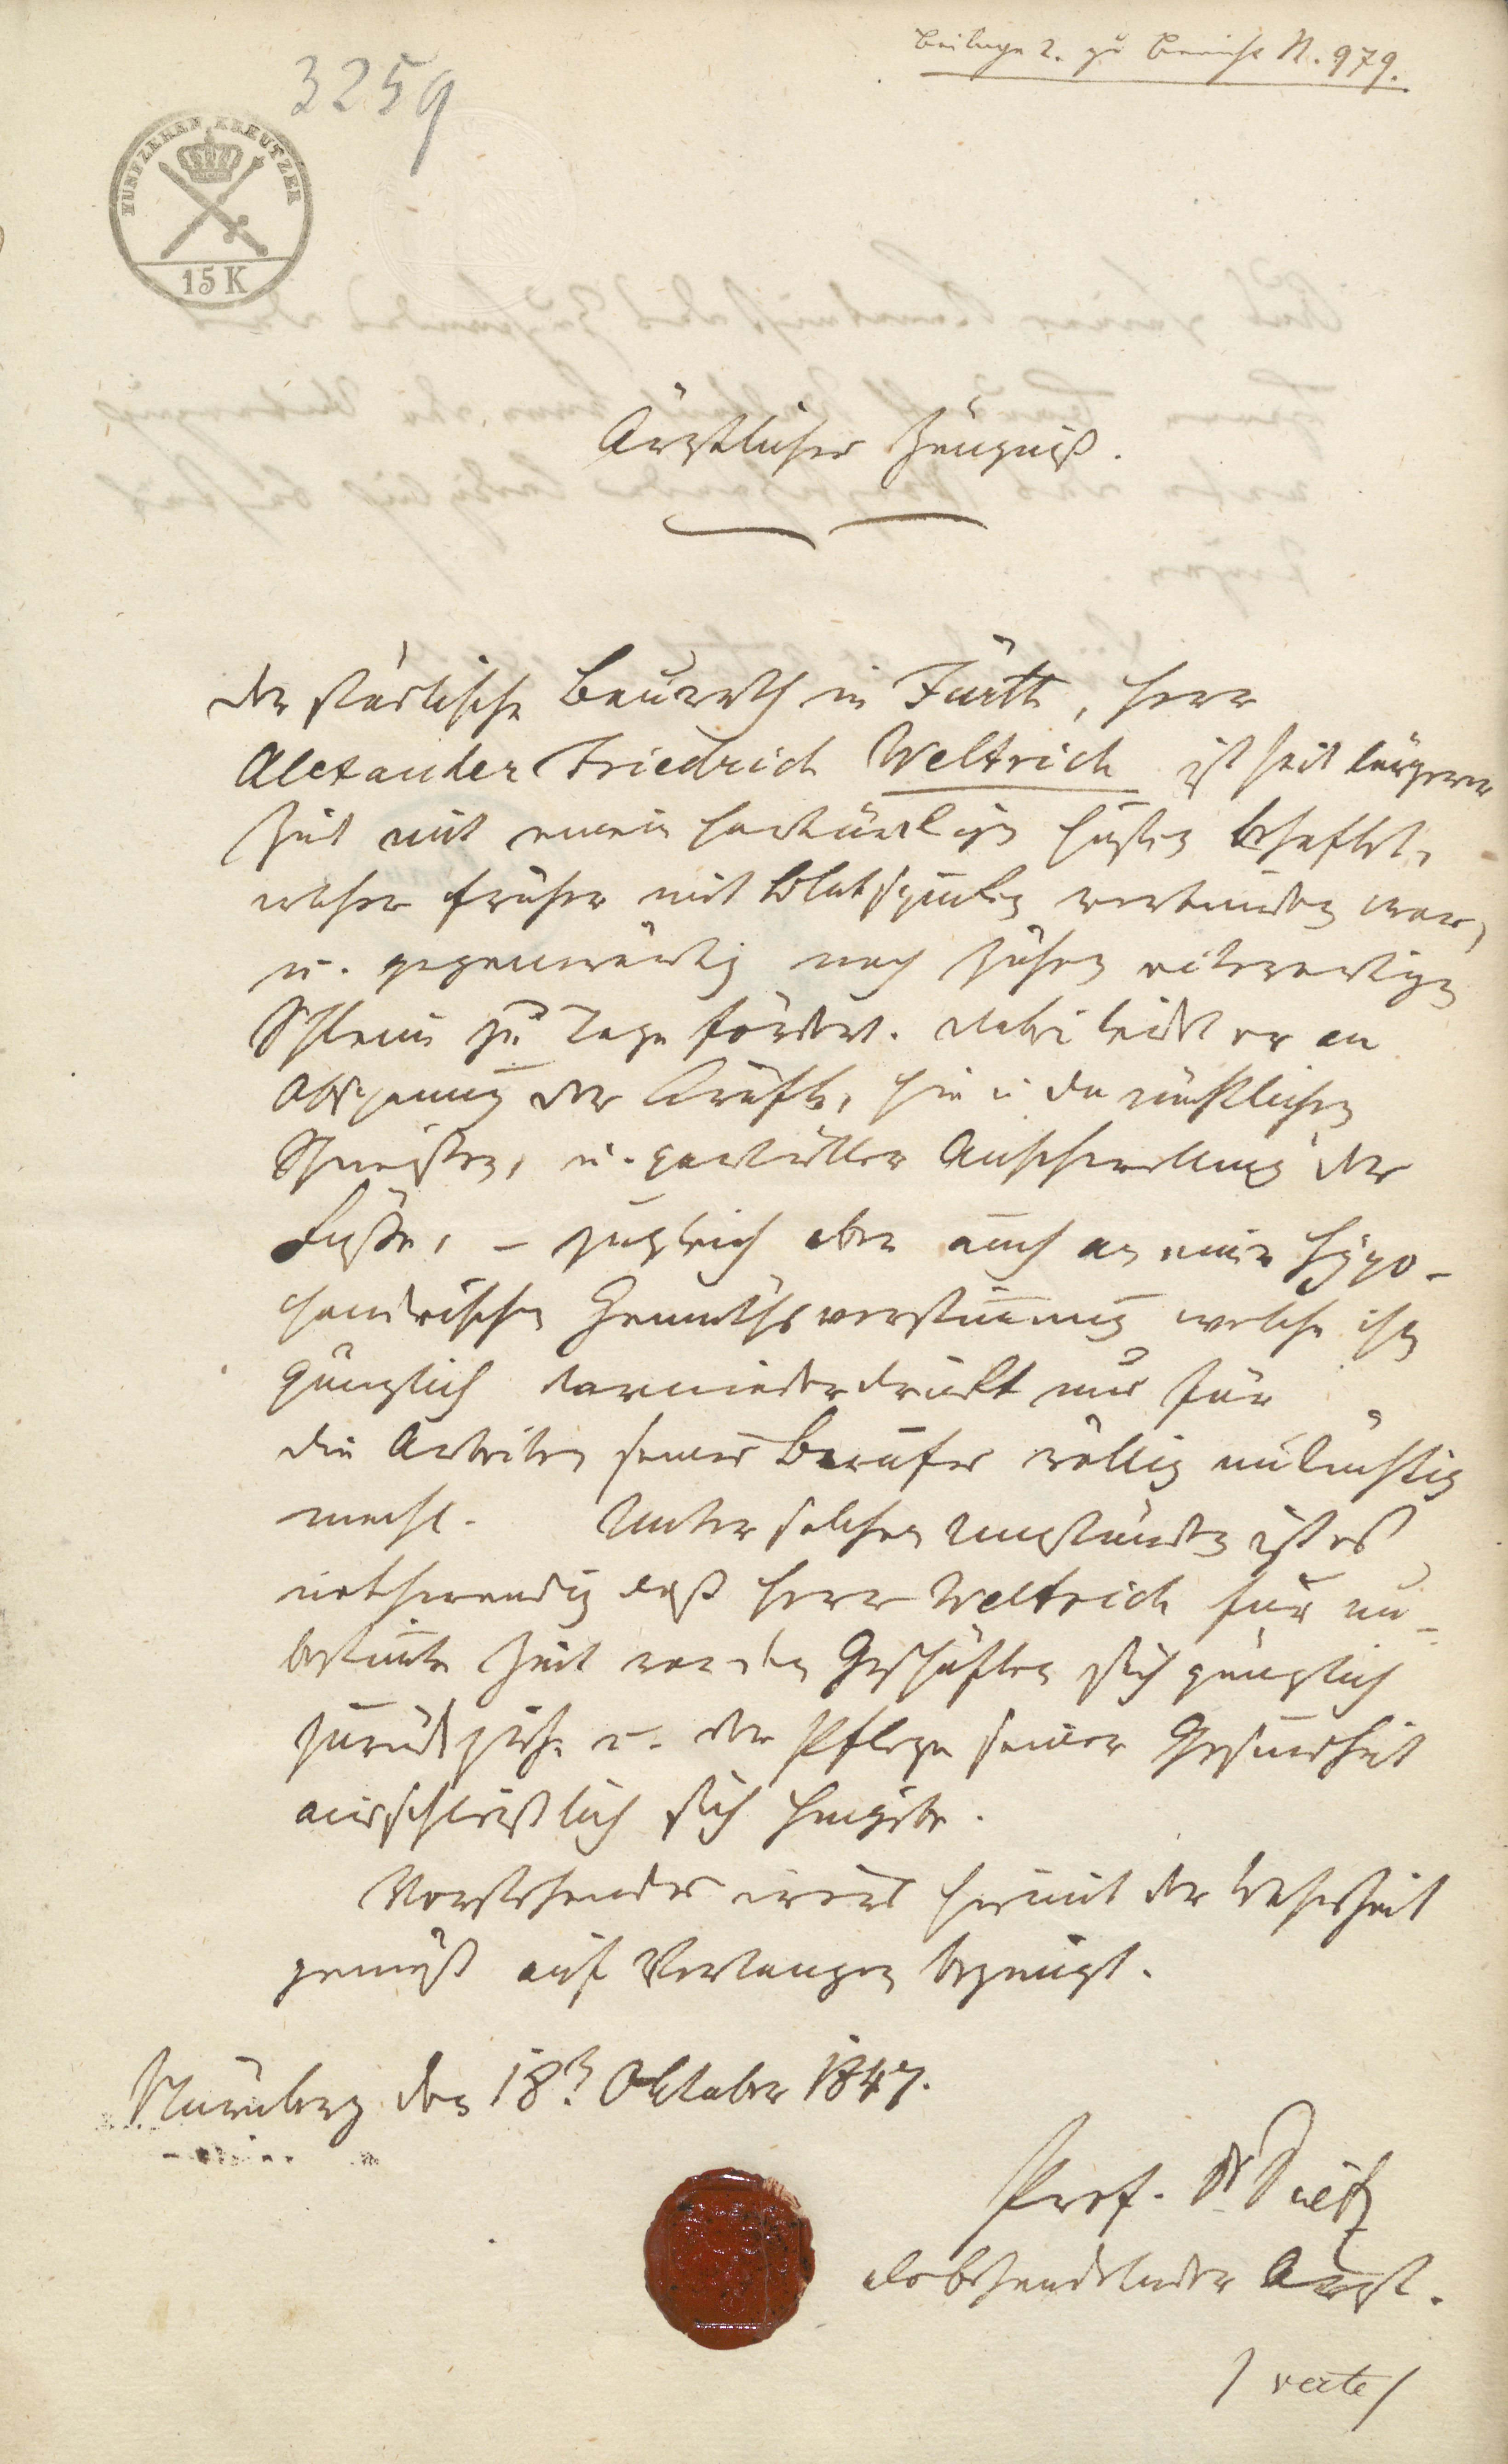 Beilage 2. zu Bericht N. 979.
3259
FUNFZEHEN KREUTZER
15 K
Ärztliches Zeugniß.
Der städtische Baurath in Fürth, Herr
Alexander Friedrich Weltrich ist seit längerer
Zeit mit einem hartnäckigen Husten behaftet,
welcher früher mit Blutspucken verbunden war,
u. gegenwärtig noch zähen eiterartigen
Schleim zu Tage fördert. Dabei leidet er an
Abspannung der Kräfte, hie u da nächtlichen
Schweißen, u. partieller Anschwellung der
Füße, – zugleich aber auch an einer hypo-
chondrischen Gemüthsverstimmung welche ihn
gänzlich darniederdrückt und für
die Arbeiten seines Berufes völlig untüchtig
macht. Unter solchen Umständen ist es
nothwendig daß Herr Weltrich für un-
bestimmte Zeit von den Geschäften sich gänzlich
zurückziehe u. der Pflege seiner Gesundheit
ausschließlich sich hingebe.
Vorstehendes wird hiemit der Wahrheit
gemäß auf Verlangen bezeugt.
Nürnberg den 18t Oktober 1847.
Prof. Dr Dietz
als behandelnder Arzt.
/ verte /